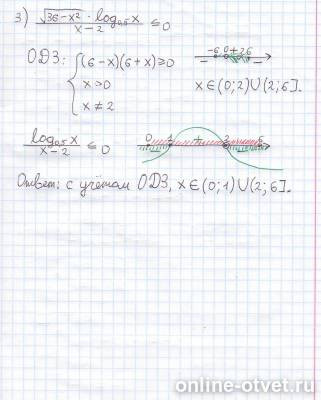 3) √(36-x²) · log₀,₅x / (x-2) ≤ 0
ОДЗ: { (6-x)(6+x) ≥ 0
x > 0
x ≠ 2
-6 0 + 2 6
- -
x ∈ (0; 2) ∪ (2; 6].
log₀,₅x / (x-2) ≤ 0
0 1 + 2 6
- -
Ответ: с учётом ОДЗ, x ∈ (0; 1) ∪ (2; 6].
online-otvet.ru